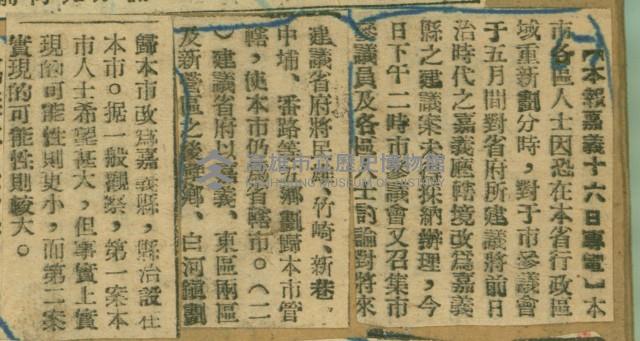 【本報嘉義十六日專電】本
市各區人士因恐在本省行政區
域重新劃分時，對于市參議會
于五月間對省府所建議將前日
治時代之嘉義廳轄境改爲嘉義
縣之建議案未獲採納辦理，今
日下午二時市參議會又召集市
參議員及各區人士討論對將來
建議省府將民雄、竹崎、新巷、
中埔、番路等五鄉劃歸本市管
轄，使本市仍爲省轄市。（二
）建議省府以嘉義、東區兩區
及新營區之後壁鄉、白河鎭劃
歸本市改爲嘉義縣，縣治設在
本市。据一般觀察，第一案本
市人士希望甚大，但事實上實
現的可能性則更小，而第二案
實現的可能性則較大。
高雄市立歷史博物館
KAOHSIUNG MUSEUM OF HISTORY